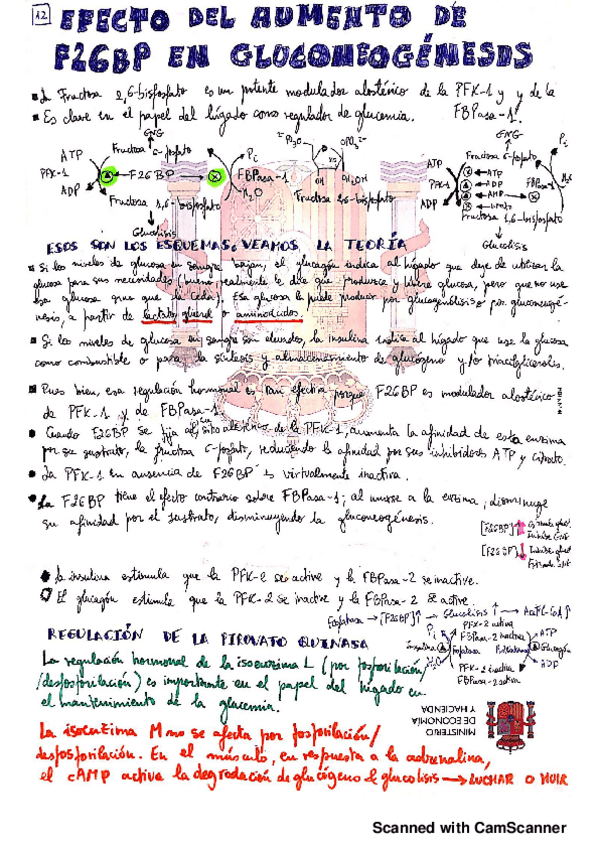 12 EFECTO DEL AUMENTO DE
F26BP EN GLUCONEOGÉNESIS
La Fructosa 2,6-bisfosfato es un potente modulador alostérico de la PFK-1 y y de la
Es clave en el papel del hígado como regulador de glucemia. FBPasa-1.
GNG
Fructosa 6-fosfato
ATP
PFK-1
ADP
F26BP
FBPasa-1
Pi
H2O
Fructosa 1,6-bisfosfato
Glucólisis
OH
Fructosa 2,6-bisfosfato
GNG
Fructosa 6-fosfato
ATP
PFK-1
ADP
ATP
ADP
AMP
FBPasa-1
Pi
H2O
Fructosa 1,6-bisfosfato
Glucólisis
ESOS SON LOS ESQUEMAS, VEAMOS LA TEORÍA
Si los niveles de glucosa en sangre bajan, el glucagón indica al hígado que deje de utilizar la
glucosa para sus necesidades (bueno, realmente le dice que produzca y libere glucosa, pero que no use
esa glucosa sino que la ceda). Esa glucosa la puede producir por glucogenólisis o por gluconeogé-
nesis, a partir de lactato, glicerol o aminoácidos.
Si los niveles de glucosa en sangre son elevados, la insulina indica al hígado que use la glucosa
como combustible o para la síntesis y almacenamiento de glucógeno y/o triacilgliceroles.
Pues bien, esa regulación hormonal es tan efectiva porque F26BP es modulador alostérico
de PFK-1 y de FBPasa-1.
Cuando F26BP se fija al sitio alostérico de la PFK-1, aumenta la afinidad de esta enzima
por su sustrato, la fructosa 6-fosfato, reduciendo la afinidad por sus inhibidores ATP y citrato.
La PFK-1 en ausencia de F26BP es virtualmente inactiva.
La F26BP tiene el efecto contrario sobre FBPasa-1; al unirse a la enzima, disminuye
su afinidad por el sustrato, disminuyendo la gluconeogénesis.
[F26BP]↑
[F26BP]↓
La insulina estimula que la PFK-2 se active y la FBPasa-2 se inactive.
El glucagón estimula que la PFK-2 se inactive y la FBPasa-2 se active.
Fosfatasa → [F26BP]↑ → Glucólisis↑ →
PFK-2 activa
FBPasa-2 inactiva
Pi
ATP
Insulina
Fosfatasa
Glucagón
ADP
PFK-2 inactiva
FBPasa-2 activa
REGULACIÓN DE LA PIRUVATO QUINASA
La regulación hormonal de la isoenzima L (por fosforilación/
desfosforilación) es importante en el papel del hígado en
el mantenimiento de la glucemia.
La isoenzima M no se afecta por fosforilación/
desfosforilación. En el músculo, en respuesta a la adrenalina,
el cAMP activa la degradación de glucógeno & glucolisis → LUCHAR O HUIR
MINISTERIO
DE ECONOMÍA
Y HACIENDA
Scanned with CamScanner